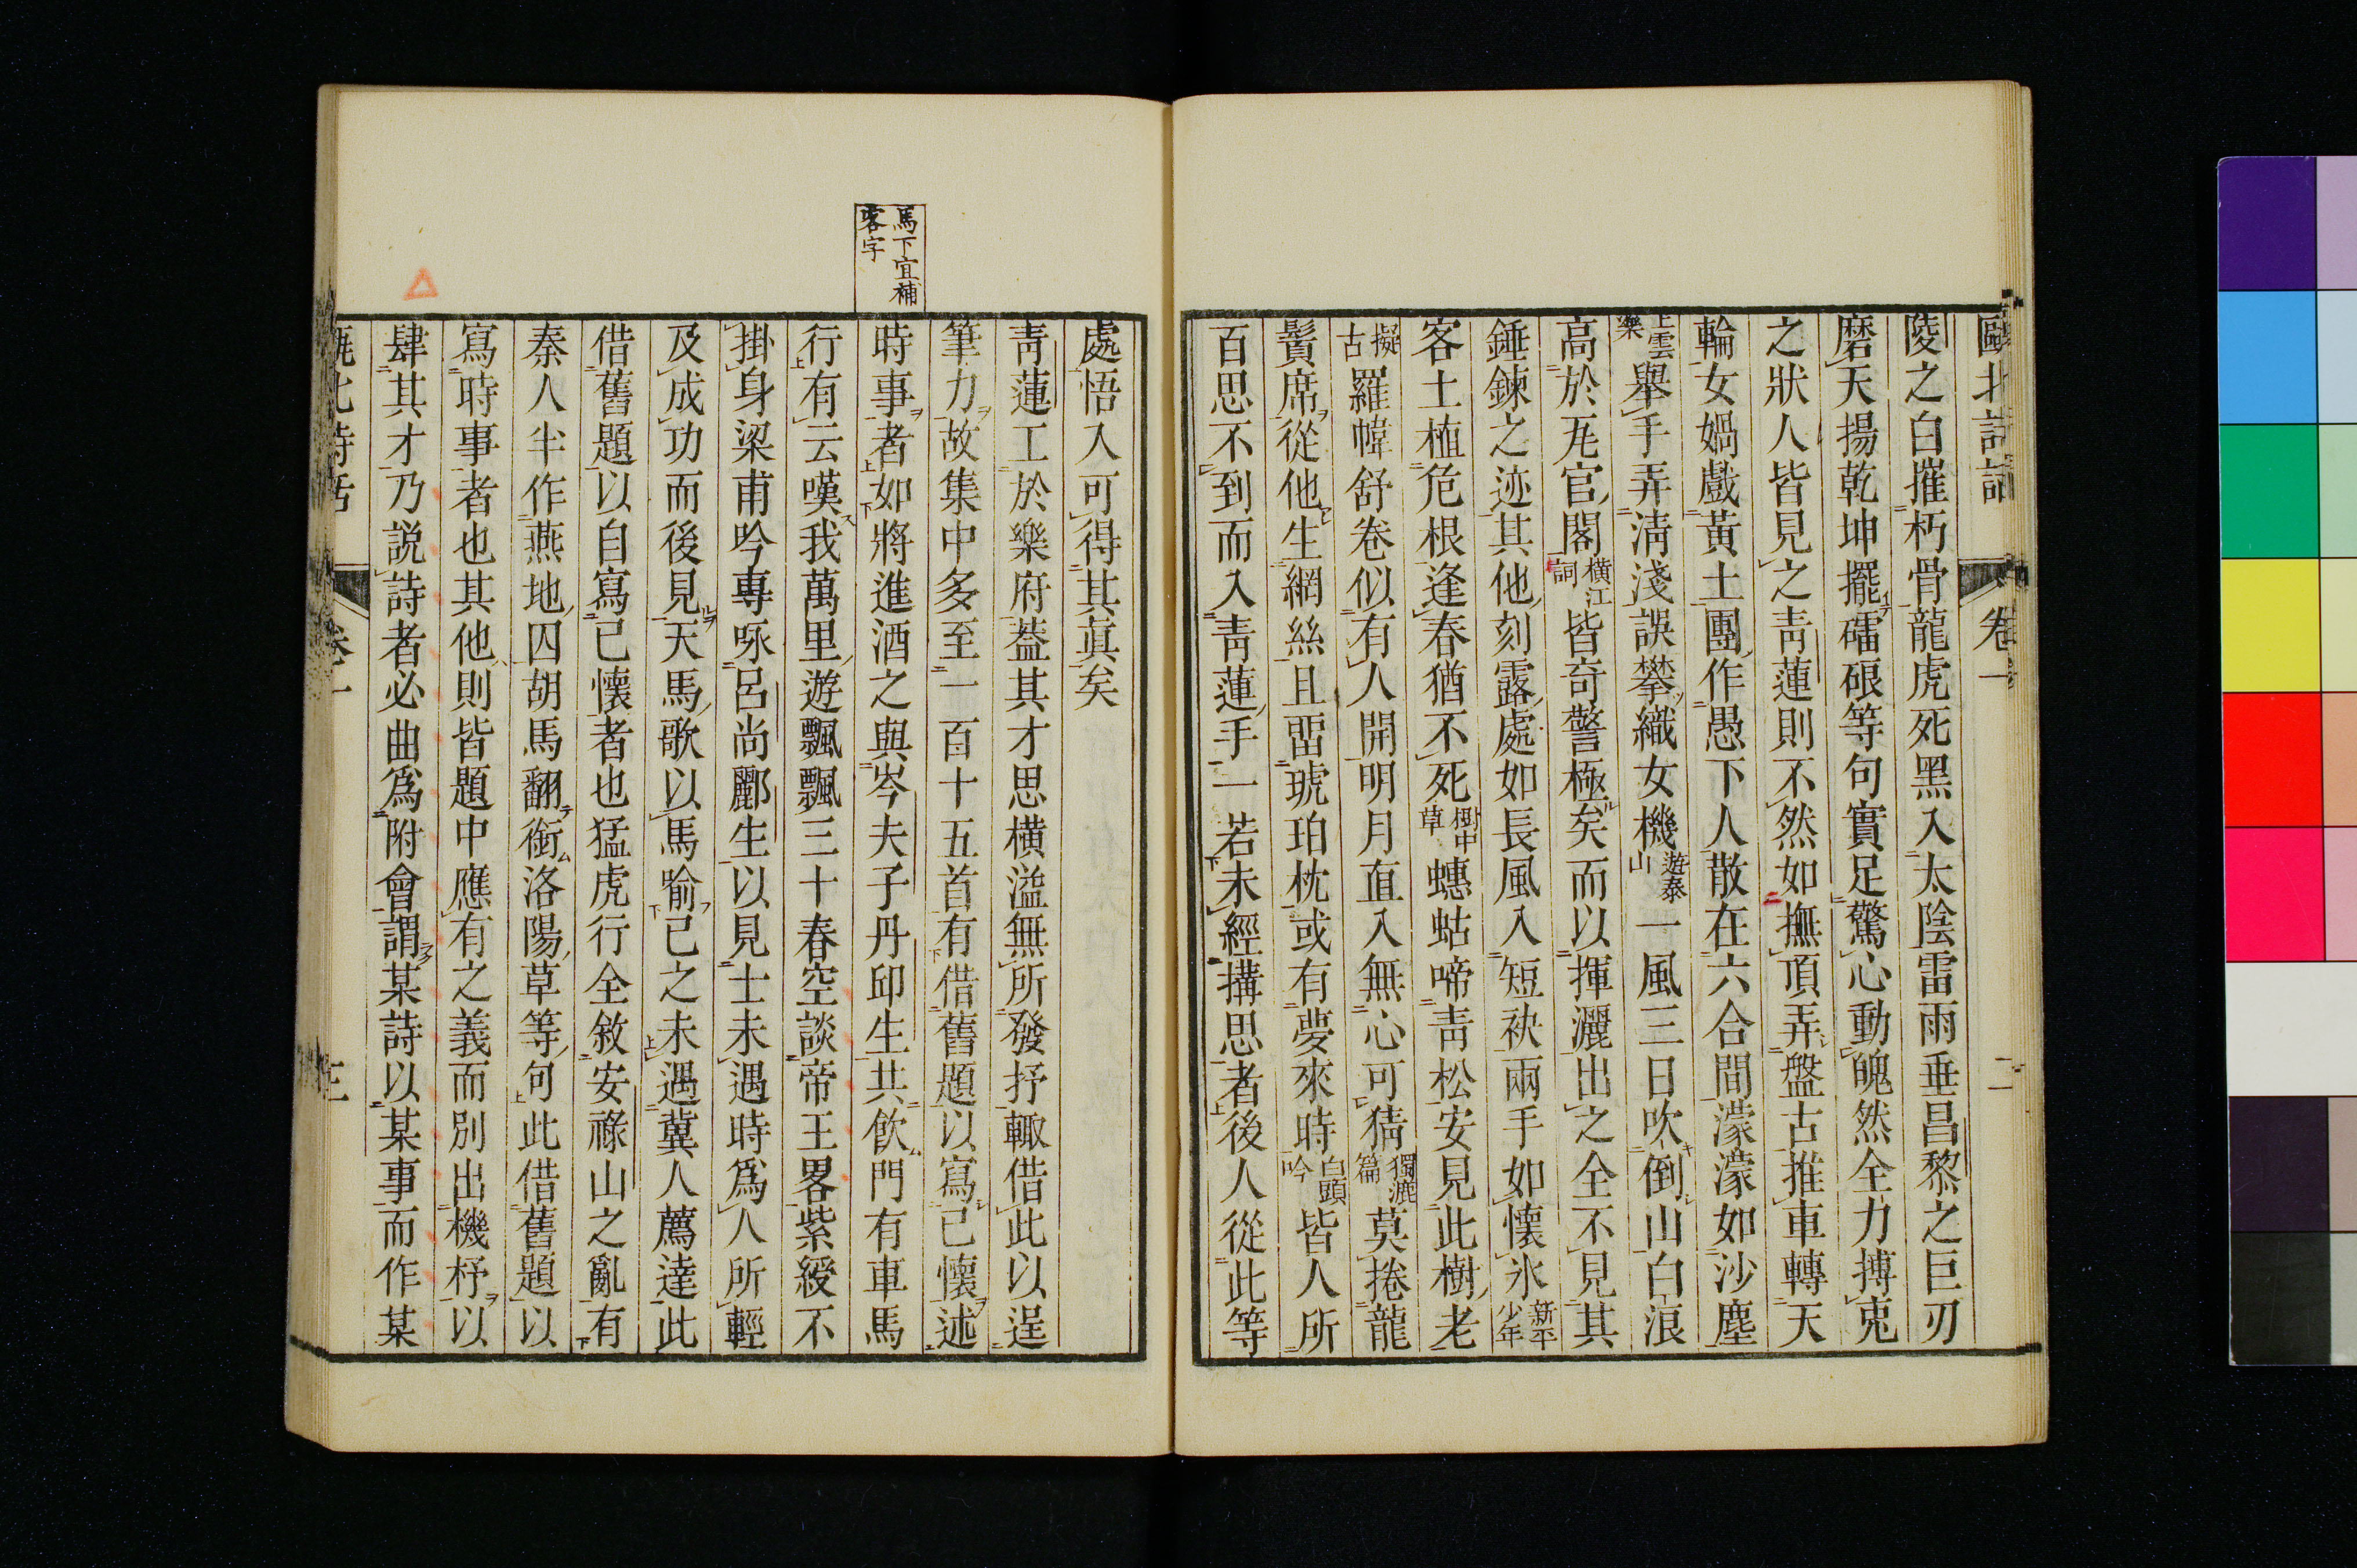 甌北詩話 卷一 二
陵之白摧朽骨龍虎死黑入太陰雷雨垂昌黎之巨刃
磨天揚乾坤擺礌硠等句實足驚心動魄然全力搏兎
之狀人皆見之靑蓮則不然如撫頂弄盤古推車轉天
輪女媧戲黃土團作愚下人散在六合間濛濛如沙塵
上雲樂舉手弄淸淺誤攀織女機遊泰山一風三日吹倒山白浪
高於瓦官閣橫江詞皆奇警極矣而以揮灑出之全不見其
錘鍊之迹其他刻露處如長風入短袂兩手如懷氷新平少年
客土植危根逢春猶不死樹中草蟪蛄啼靑松安見此樹老
擬古羅幃舒卷似有人開明月直入無心可猜獨漉篇莫捲龍
鬚席從他生網絲且畱琥珀枕或有夢來時白頭吟皆人所
百思不到而入靑蓮手一若未經搆思者後人從此等
處悟入可得其眞矣
靑蓮工於樂府葢其才思橫溢無所發抒輒借此以逞
筆力故集中多至一百十五首有借舊題以寫已懷述
時事者如將進酒之與岑夫子丹邱生共飮門有車馬
馬下宜補客字
行有云嘆我萬里遊飄飄三十春空談帝王畧紫綬不
掛身梁甫吟專咏呂尚酈生以見士未遇時爲人所輕
及成功而後見天馬歌以馬喻己之未遇冀人薦達此
借舊題以自寫已懷者也猛虎行全敘安祿山之亂有
秦人半作燕地囚胡馬翻銜洛陽草等句此借舊題以
寫時事者也其他則皆題中應有之義而別出機杼以
肆其才乃説詩者必曲爲附會謂某詩以某事而作某
甌北詩話 卷一 三